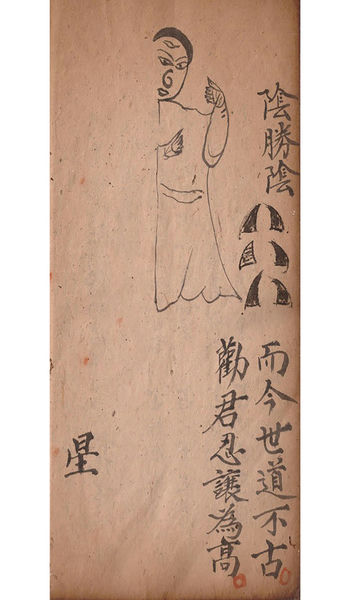 陰勝陰
而今世道不古
勸君忍讓為高
星